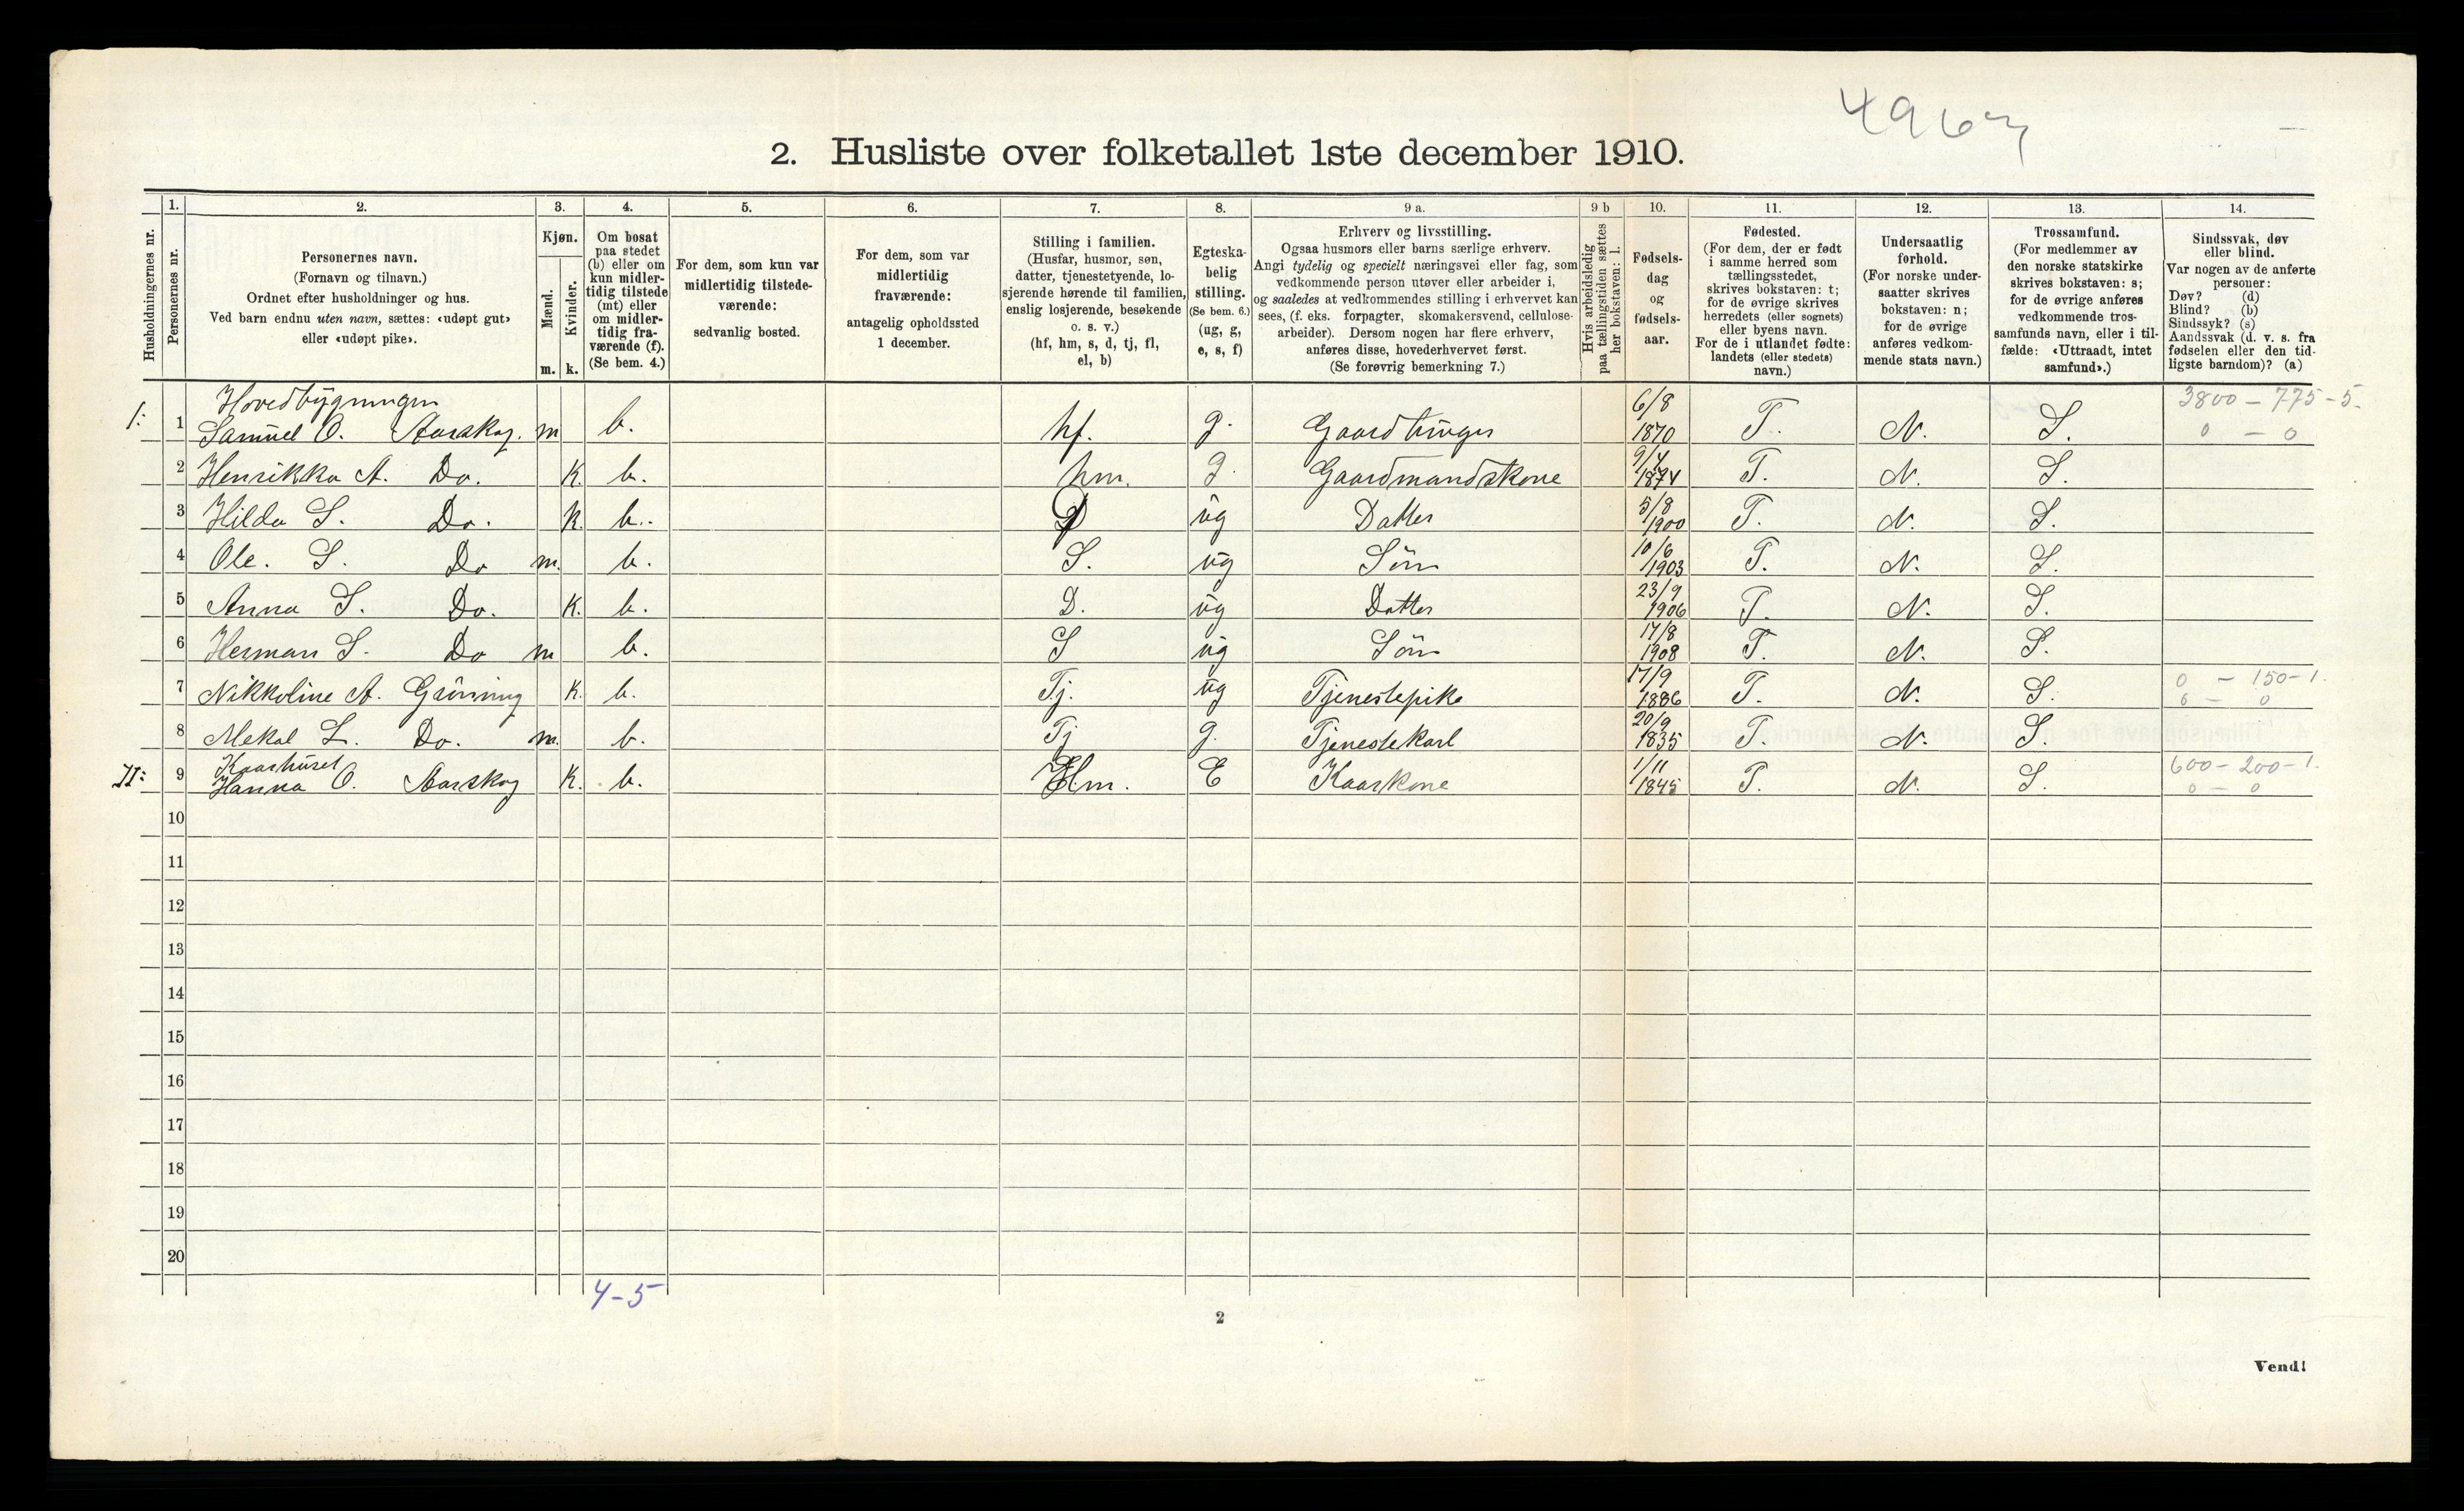 4963
2. Husliste over folketallet 1ste december 1910.
Husholdningernes nr.
1. Personernes nr.
2. Personernes navn.
(Fornavn og tilnavn.)
Ordnet efter husholdninger og hus.
Ved barn endnu uten navn, sættes: «udøpt gut»
eller «udøpt pike».
3. Kjøn.
Mænd. Kvinder.
m. k.
4. Om bosat
paa stedet
(b) eller om
kun midler-
tidig tilstede
(mt) eller
om midler-
tidig fra-
værende (f).
(Se bem. 4.)
5. For dem, som kun var
midlertidig tilstede-
værende:
sedvanlig bosted.
6. For dem, som var
midlertidig
fraværende:
antagelig opholdssted
1 december.
7. Stilling i familien.
(Husfar, husmor, søn,
datter, tjenestetyende, lo-
sjerende hørende til familien,
enslig losjerende, besøkende
o. s. v.)
(hf, hm, s, d, tj, fl,
el, b)
8. Egteska-
belig
stilling.
(Se bem. 6.)
(ug, g,
e, s, f)
9 a. Erhverv og livsstilling.
Ogsaa husmors eller barns særlige erhverv.
Angi tydelig og specielt næringsvei eller fag, som
vedkommende person utøver eller arbeider i,
og saaledes at vedkommendes stilling i erhvervet kan
sees, (f. eks. forpagter, skomakersvend, cellulose-
arbeider). Dersom nogen har flere erhverv,
anføres disse, hovederhvervet først.
(Se forøvrig bemerkning 7.)
9 b Hvis arbeidsledig
paa tællingstiden sættes
her bokstaven: l.
10. Fødsels-
dag
og
fødsels-
aar.
11. Fødested.
(For dem, der er født
i samme herred som
tællingsstedet,
skrives bokstaven: t;
for de øvrige skrives
herredets (eller sognets)
eller byens navn.
For de i utlandet fødte:
landets (eller stedets)
navn.)
12. Undersaatlig
forhold.
(For norske under-
saatter skrives
bokstaven: n;
for de øvrige
anføres vedkom-
mende stats navn.)
13. Trossamfund.
(For medlemmer av
den norske statskirke
skrives bokstaven: s;
for de øvrige anføres
vedkommende tros-
samfunds navn, eller i til-
fælde: «Uttraadt, intet
samfund».)
14. Sindssvak, døv
eller blind.
Var nogen av de anførte
personer:
Døv? (d)
Blind? (b)
Sindssyk? (s)
Aandssvak (d. v. s. fra
fødselen eller den tid-
ligste barndom)? (a)
Hovedbygningen 6/8 3800 – 775 – 5.
1: 1 Samuel O. Aarskog. m b. hf. g. Gaardbruger 1870 T. N. S. 0 – 0
2 Henrikka A. Do. K. b. hm. g. Gaardmandskone 9/4 1874 T. N. S.
3 Hilda S. Do. K. b. D ug Datter 5/8 1900 T. N. S.
4 Ole. S. Do m. b. S. ug Søn 10/6 1903 T. N. S.
5 Anna S. Do. K. b. D. ug Datter 23/9 1906 T. N. S.
6 Herman S. Do m b. S ug Søn 17/8 1908 T. N. S.
7 Nikkoline A. Grönning K. b. Tj. ug Tjenestepike 17/9 1886 T. N. S. 0 – 150 – 1.
0 – 0
8 Mekal L. Do. m. b. Tj g. Tjenestekarl 20/9 1835 T. N. S.
Kaarhuset
II: 9 Hanna O. Aarskog K. b. Hm. E Kaarkone 1/11 1845 T. N. S. 600 – 200 – 1.
0 – 0
10
11
12
13
14
15
16
17
18
19
20
4-5
2
Vend!